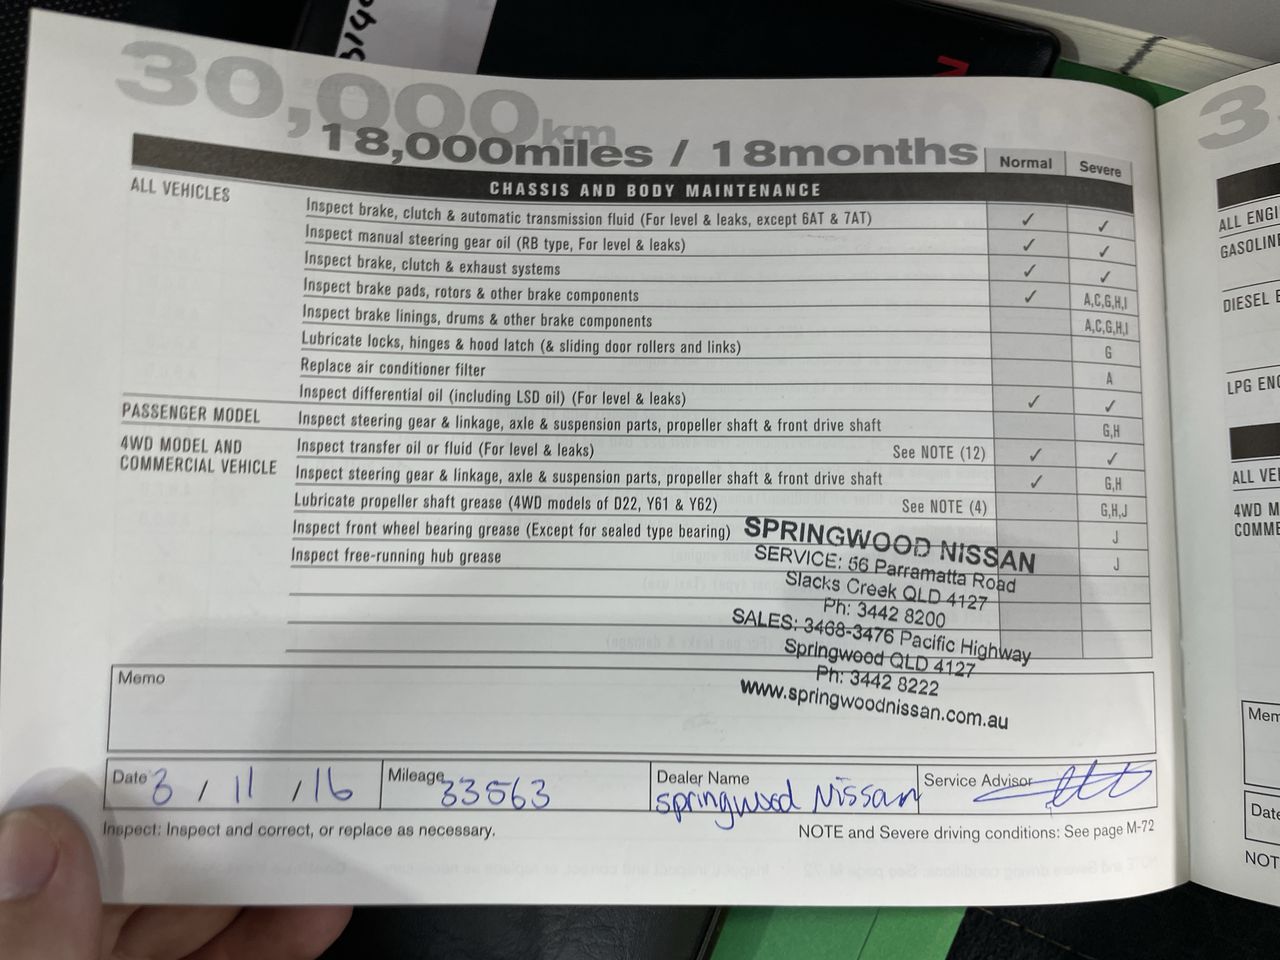 30,000km
18,000miles / 18months
Normal Severe
CHASSIS AND BODY MAINTENANCE
ALL VEHICLES
Inspect brake, clutch & automatic transmission fluid (For level & leaks, except 6AT & 7AT) ✓ ✓
Inspect manual steering gear oil (RB type, For level & leaks) ✓ ✓
Inspect brake, clutch & exhaust systems ✓ ✓
Inspect brake pads, rotors & other brake components ✓ A,C,G,H,I
Inspect brake linings, drums & other brake components A,C,G,H,I
Lubricate locks, hinges & hood latch (& sliding door rollers and links) G
Replace air conditioner filter A
Inspect differential oil (including LSD oil) (For level & leaks) ✓ ✓
PASSENGER MODEL Inspect steering gear & linkage, axle & suspension parts, propeller shaft & front drive shaft G,H
4WD MODEL AND
COMMERCIAL VEHICLE
Inspect transfer oil or fluid (For level & leaks) See NOTE (12) ✓ ✓
Inspect steering gear & linkage, axle & suspension parts, propeller shaft & front drive shaft ✓ G,H
Lubricate propeller shaft grease (4WD models of D22, Y61 & Y62) See NOTE (4) G,H,J
Inspect front wheel bearing grease (Except for sealed type bearing) J
Inspect free-running hub grease J
SPRINGWOOD NISSAN
SERVICE: 56 Parramatta Road
Slacks Creek QLD 4127
Ph: 3442 8200
SALES: 3468-3476 Pacific Highway
Springwood QLD 4127
Ph: 3442 8222
www.springwoodnissan.com.au
Memo
Date 3 / 11 / 16
Mileage 33563
Dealer Name springwood Nissan
Service Advisor
Inspect: Inspect and correct, or replace as necessary.
NOTE and Severe driving conditions: See page M-72
3
ALL ENGI
GASOLINE
DIESEL E
LPG ENG
ALL VE
4WD M
COMME
Mem
Date
NOT